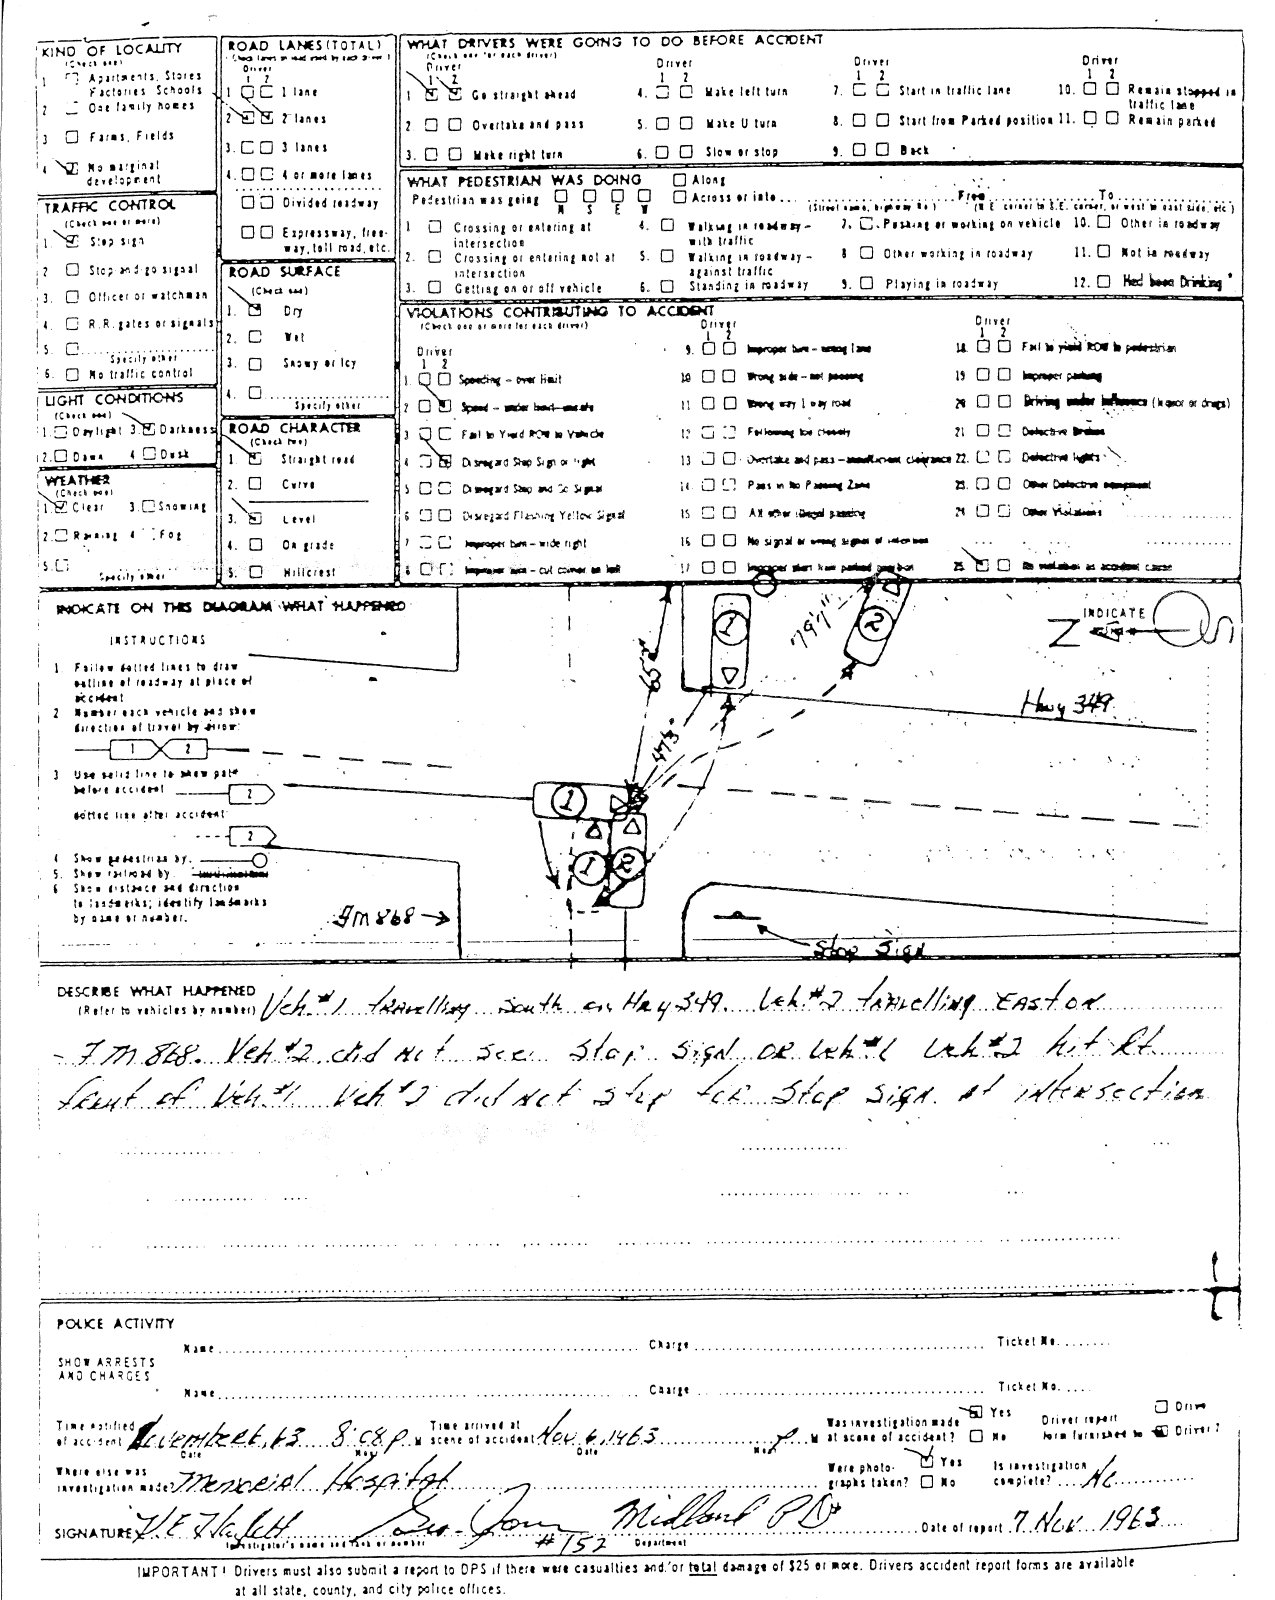 KIND OF LOCALITY
(Check one)
1 Apartments, Stores
Factories, Schools
2 One family homes
3 Farms, Fields
4 No marginal
development
TRAFFIC CONTROL
(Check one or more)
1. Stop sign
2 Stop and go signal
3. Officer or watchman
4. R.R. gates or signals
5.
Specify other
6. No traffic control
LIGHT CONDITIONS
(Check one)
1. Daylight 3. Darkness
2. Dawn 4 Dusk
WEATHER
(Check one)
1. Clear 3. Snowing
2. Raining 4 Fog
5.
Specify other
ROAD LANES (TOTAL)
(Check lanes on road used by each driver)
Driver
1 2
1 1 lane
2 2 lanes
3. 3 lanes
4. 4 or more lanes
Divided roadway
Expressway, free-
way, toll road, etc.
ROAD SURFACE
(Check one)
1. Dry
2. Wet
3. Snowy or Icy
4.
Specify other
ROAD CHARACTER
(Check two)
1. Straight road
2. Curve
3. Level
4. On grade
5. Hillcrest
WHAT DRIVERS WERE GOING TO DO BEFORE ACCIDENT
(Check one for each driver)
Driver
1 2
1 Go straight ahead
2 Overtake and pass
3. Make right turn
Driver
1 2
4. Make left turn
5. Make U turn
6. Slow or stop
Driver
1 2
7. Start in traffic lane
8. Start from Parked position
9. Back
Driver
1 2
10. Remain stopped in
traffic lane
11. Remain parked
WHAT PEDESTRIAN WAS DOING
Pedestrian was going
N S E W
Along
Across or into From To
(Street name, highway No.) (N.E. corner to S.E. corner, or west to east side, etc.)
1 Crossing or entering at
intersection
2. Crossing or entering not at
intersection
3. Getting on or off vehicle
4. Walking in roadway –
with traffic
5. Walking in roadway –
against traffic
6. Standing in roadway
7. Pushing or working on vehicle
8 Other working in roadway
9. Playing in roadway
10. Other in roadway
11. Not in roadway
12. Had been Drinking
VIOLATIONS CONTRIBUTING TO ACCIDENT
(Check one or more for each driver)
Driver
1 2
1. Speeding – over limit
2 Speed – under limit – unsafe
3 Fail to Yield ROW to Vehicle
4 Disregard Stop Sign or light
5 Disregard Stop and Go Signal
6 Disregard Flashing Yellow Signal
7 Improper turn – wide right
8 Improper turn – cut corner on left
Driver
1 2
9. Improper turn – wrong lane
10 Wrong side – not passing
11 Wrong way 1 way road
12 Following too closely
13 Overtake and pass – insufficient clearance
14 Pass in No Passing Zone
15 All other illegal passing
16 No signal or wrong signal of intention
17 Improper start from parked position
Driver
1 2
18. Fail to yield ROW to pedestrian
19 Improper parking
20 Driving under influence (liquor or drugs)
21 Defective Brakes
22. Defective lights
23. Other Defective equipment
24 Other Violations
25 No violation as accident cause
INDICATE ON THIS DIAGRAM WHAT HAPPENED
INSTRUCTIONS
1 Follow dotted lines to draw
outline of roadway at place of
accident
2 Number each vehicle and show
direction of travel by arrow:
1 2
3 Use solid line to show path
before accident 2
dotted line after accident
2
4 Show pedestrian by:
5. Show railroad by
6 Show distance and direction
to landmarks; identify landmarks
by name or number.
1
2
79'7"
65'
47'3"
INDICATE
N
Hwy 349
1
1
2
FM 868
Stop Sign
DESCRIBE WHAT HAPPENED
(Refer to vehicles by number)
Veh #1 travelling South on Hwy 349. Veh #2 travelling East on
FM 868. Veh #2 did not see Stop Sign or Veh #1 Veh #2 hit Rt
front of Veh #1 Veh #2 did not stop for Stop Sign at intersection
POLICE ACTIVITY
SHOW ARRESTS
AND CHARGES
Name Charge Ticket No.
Name Charge Ticket No.
Time notified
of accident November 6, 63 8:08 p M
Date Hour
Time arrived at
scene of accident Nov 6, 1963 p M
Date Hour
Was investigation made
at scene of accident? Yes No
Driver report
form furnished to Driver 2
Where else was
investigation made Memorial Hospital
Were photo-
graphs taken? Yes No
Is investigation
complete? No
SIGNATURE #152 Midland PD
Investigator's name and rank or number Department
Date of report 7 Nov 1963
IMPORTANT! Drivers must also submit a report to DPS if there were casualties and/or total damage of $25 or more. Drivers accident report forms are available
at all state, county, and city police offices.